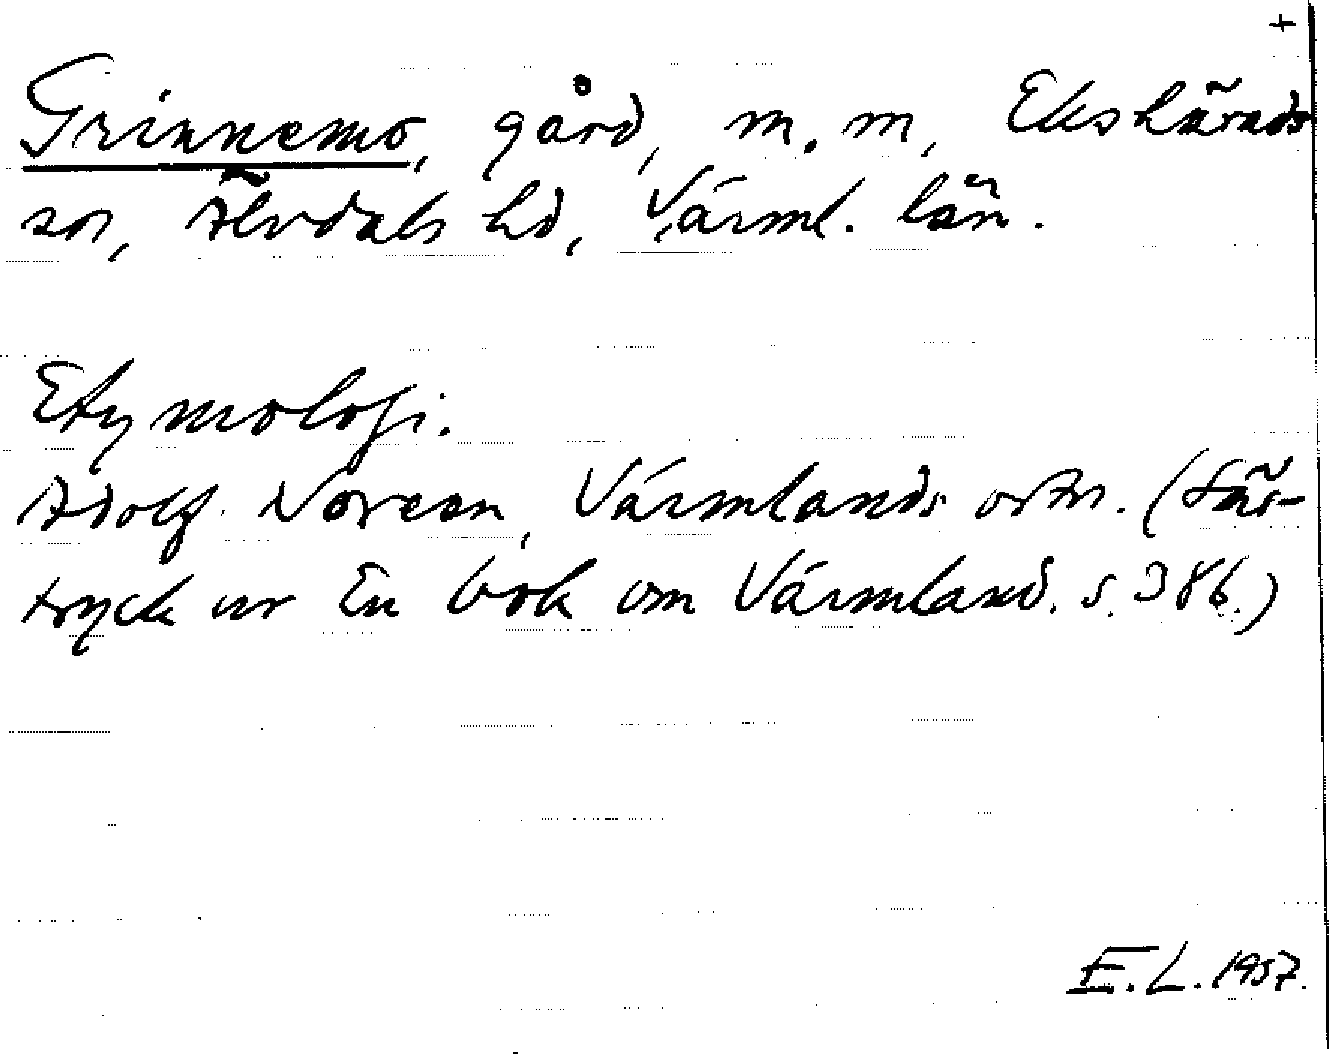 +
Grinnemo, gård, m. m, Ekshärads
sn, Älvdals hd, Värml. län.
Etymologi.
Adolf Noreen, Värmlands ortn. (Sär-
tryck ur En bok om Värmland. s. 386.)
E. L. 1957.